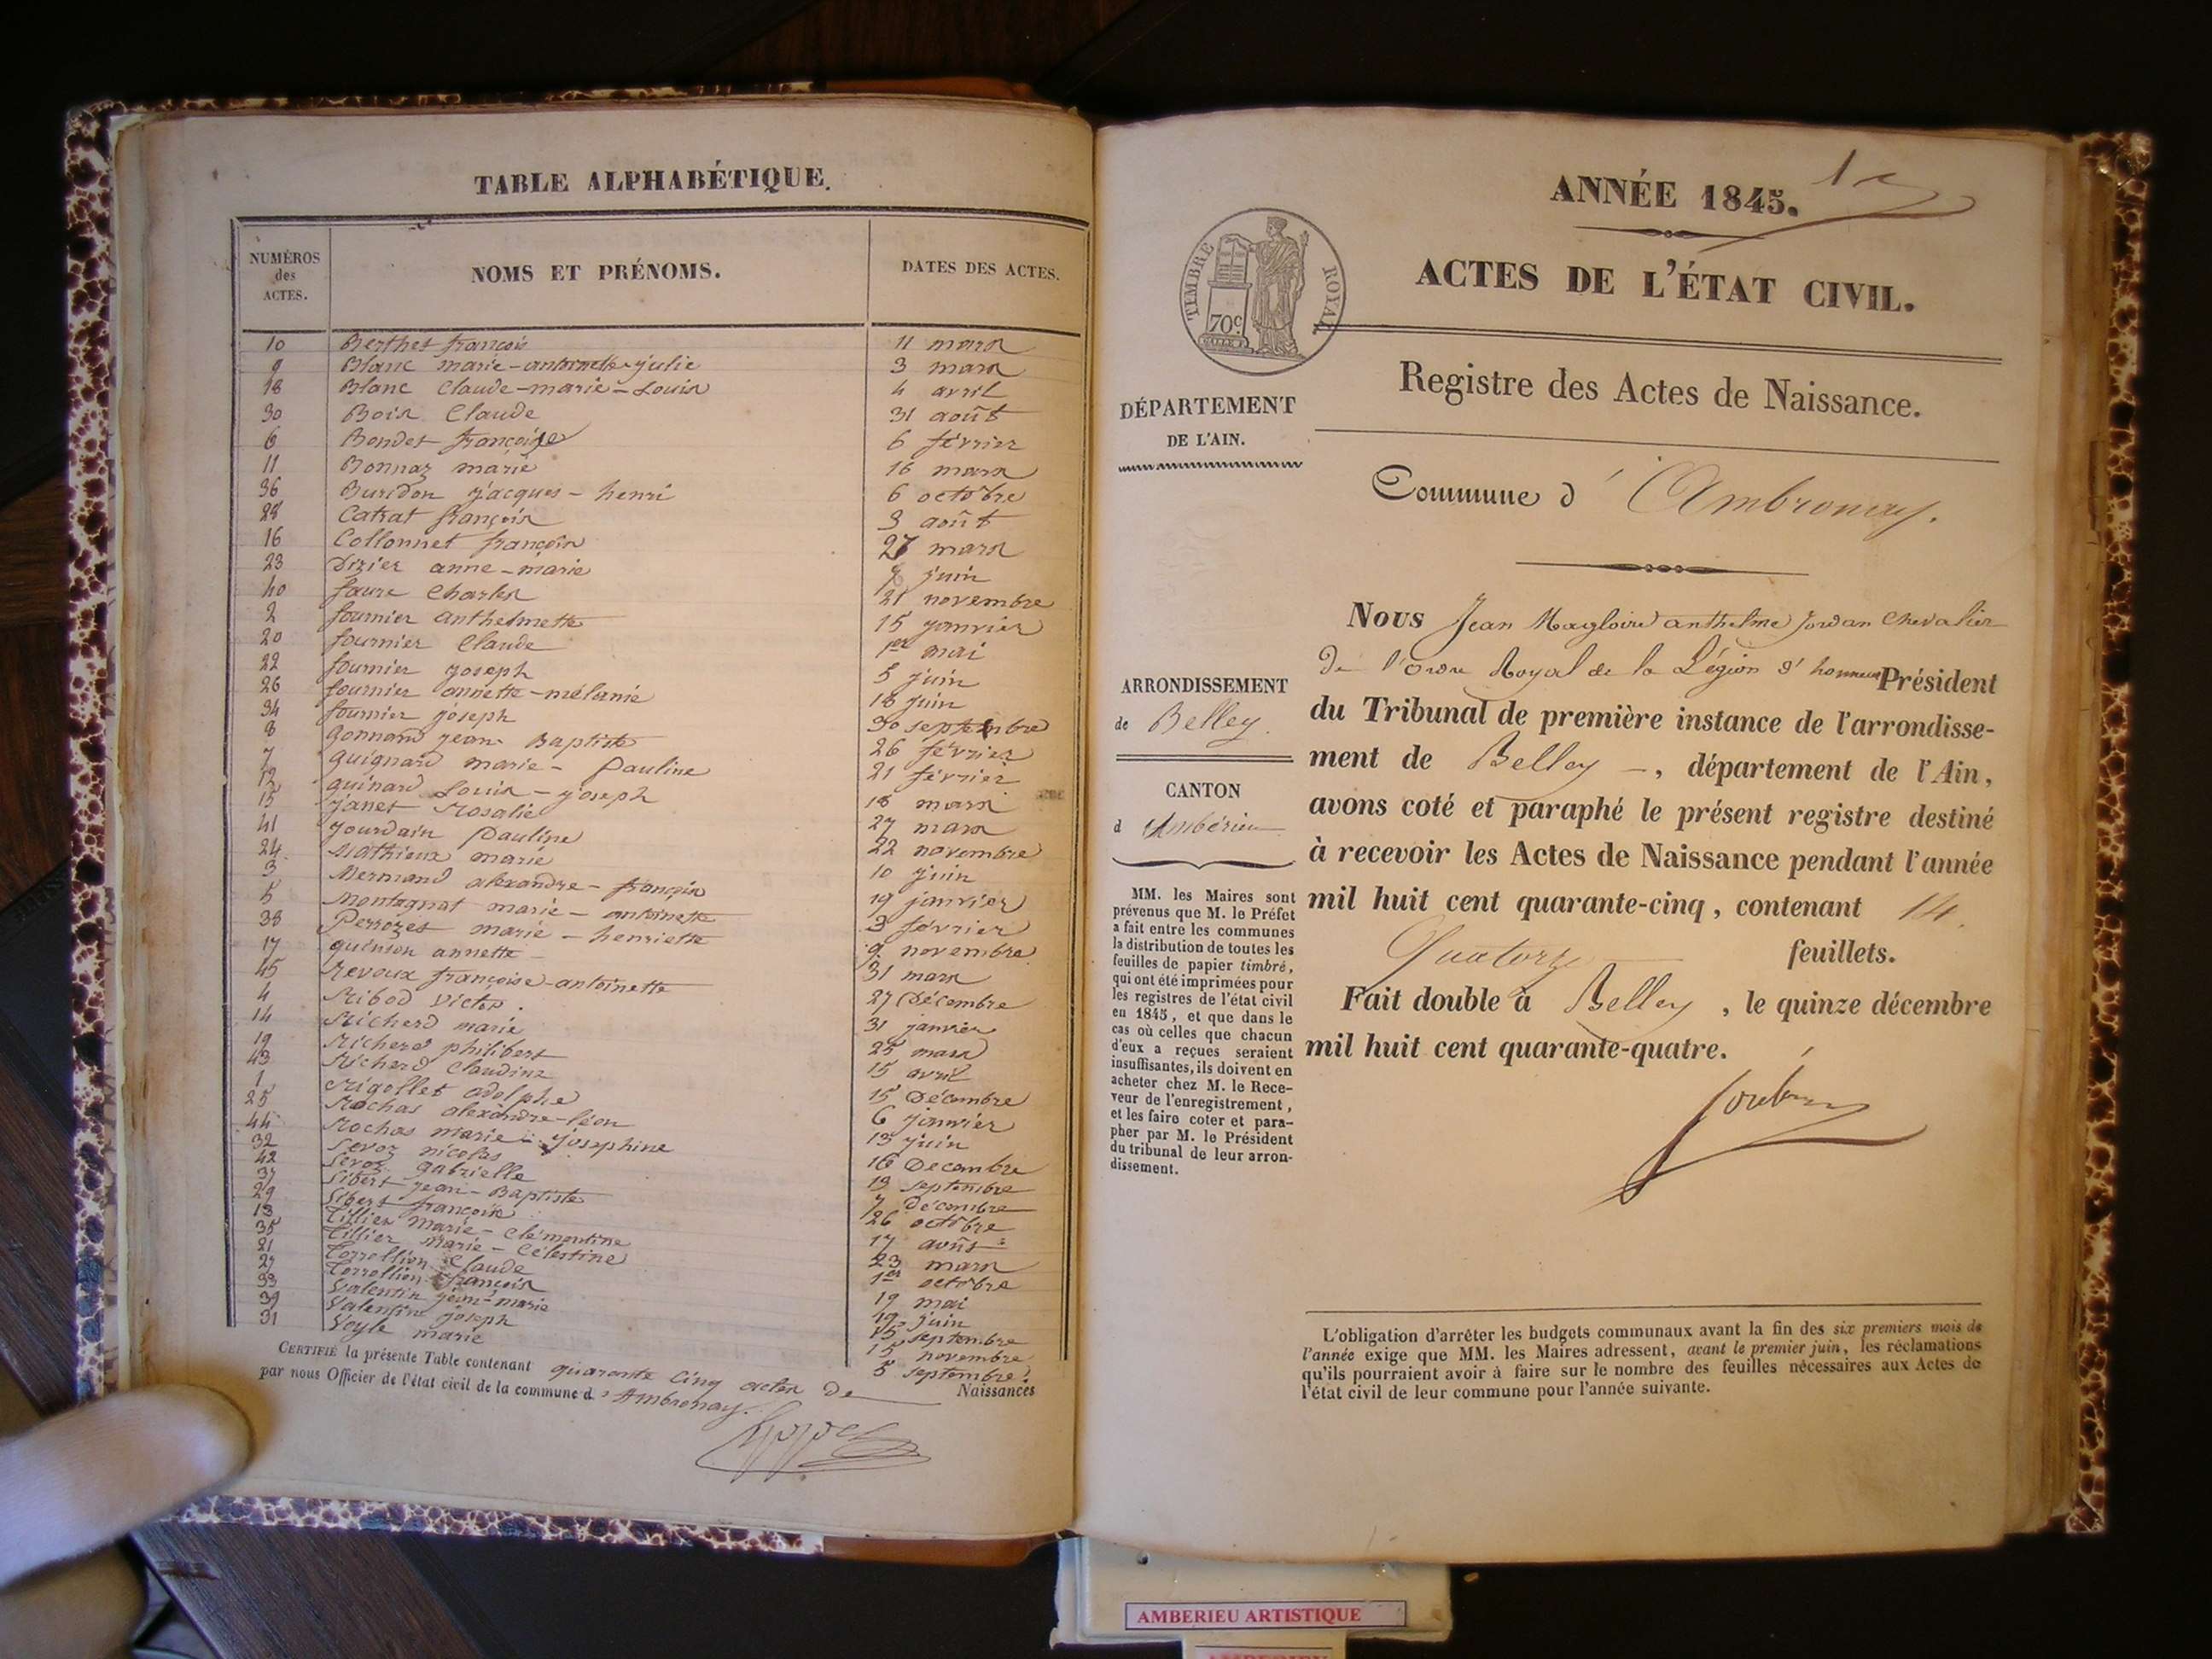 TABLE ALPHABÉTIQUE.
NUMÉROS des ACTES. NOMS ET PRÉNOMS. DATES DES ACTES.
10 Berthet françois 11 mars
9 Blanc marie-antoinette-julie 3 mars
18 Blanc Claude-marie-Louis 4 avril
30 Bois Claude 31 août
6 Bondet françoise 6 février
11 Bonnaz marie 16 mars
36 Buridon jacques-henri 6 octobre
28 Catrat françois 3 août
16 Collonnet françois 27 mars
23 Dizier anne-marie 7 juin
40 faure Charles 21 novembre
2 fournier anthelmette 15 janvier
20 fournier Claude 1er mai
22 fournier joseph 5 juin
26 fournier annette-mélanie 18 juin
34 fournier joseph 30 septembre
8 Gonnand jean Baptiste 26 février
7 guignard marie-Pauline 21 février
12 guinard Louis-joseph 18 mars
15 janet Rosalie 27 mars
41 jourdain Pauline 22 novembre
24 Mathieux marie 10 juin
3 Mermand alexandre-françois 19 janvier
5 Montagnat marie-antoinette 3 février
38 Perrozet marie-henriette 9 novembre
17 quinson annette 31 mars
45 Revoux françoise-antoinette 27 Décembre
4 Ribod victor. 31 janvier
14 Richerd marie 25 mars
19 Richerd philibert 15 avril
43 Richerd Claudine 15 Décembre
1 Rigollet adolphe 6 janvier
25 Rochas alexandre-léon 13 juin
44 Rochas marie-josephine 16 Decembre
32 Servoz nicolas 13 septembre
42 Servoz gabrielle 7 Décembre
37 Sibert jean-Baptiste 26 octobre
29 Sibert françois 17 août
13 Tillier marie-Clémentine 23 mars
35 Tillier marie-Célestine 1er octobre
21 Torrollion Claude 19 mai
27 Torrollion françois 19 juin
33 Valentin jean-marie 15 septembre
39 Valentin joseph 15 novembre
31 Veyle marie 5 septembre.
CERTIFIÉ la présente Table contenant quarante Cinq actes de Naissances
par nous Officier de l'état civil de la commune d'Ambronay.
ANNÉE 1845.
TIMBRE ROYAL
70c.
ACTES DE L'ÉTAT CIVIL.
Registre des Actes de Naissance.
DÉPARTEMENT
DE L'AIN.
Commune d'Ambronay.
ARRONDISSEMENT
de Belley.
CANTON
d Ambérieu
MM. les Maires sont
prévenus que M. le Préfet
a fait entre les communes
la distribution de toutes les
feuilles de papier timbré,
qui ont été imprimées pour
les registres de l'état civil
en 1845, et que dans le
cas où celles que chacun
d'eux a reçues seraient
insuffisantes, ils doivent en
acheter chez M. le Rece-
veur de l'enregistrement,
et les faire coter et para-
pher par M. le Président
du tribunal de leur arron-
dissement.
Nous Jean Magloire anthelme Jordan Chevalier
De l'ordre Royal de la Légion d'honneur Président
du Tribunal de première instance de l'arrondisse-
ment de Belley -, département de l'Ain,
avons coté et paraphé le présent registre destiné
à recevoir les Actes de Naissance pendant l'année
mil huit cent quarante-cinq, contenant 14.
Quatorze feuillets.
Fait double à Belley, le quinze décembre
mil huit cent quarante-quatre.
L'obligation d'arrêter les budgets communaux avant la fin des six premiers mois de
l'année exige que MM. les Maires adressent, avant le premier juin, les réclamations
qu'ils pourraient avoir à faire sur le nombre des feuilles nécessaires aux Actes de
l'état civil de leur commune pour l'année suivante.
AMBERIEU ARTISTIQUE